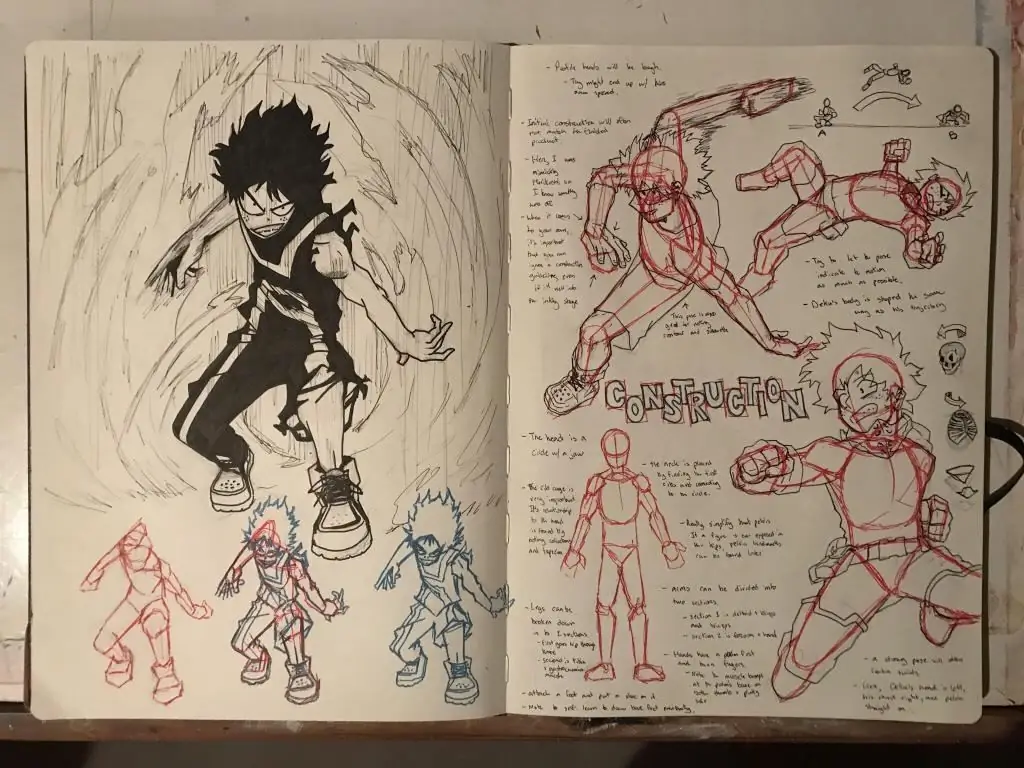 - Profile heads will be tough.
- Try might end up w/
- Initial construction will often
not match the finished
product.
- Here, I was
mimicking
Horikoshi so
I know something
was off.
- When it comes
to your own,
it's important
that you can
ignore a construction
guideline, even
if it's well into
the inking stage
A
B
This pose is also
good for noting
contour and silhouette
- Try to let the pose
indicate the motion
as much as possible.
- Deku's body is shaped the same
way as his trajectory
CONSTRUCTION
- The head is a
circle w/ a jaw
- The rib cage is
very important
It's relationship
to the head
is found by
noting
and tapering
- the neck is placed
by finding the first
ribs and connecting
to the circle.
- Really simplify that pelvis
If a figure is
the legs, pelvis landmarks
can be found later
- Legs can be
broken down
in to 2 sections.
- first goes hip through
knee
- second is tibia +
muscle
- attach a foot and put a shoe on it
- Note to self: learn to draw bare feet
- Arms can be divided into
two sections.
- section 1 is deltoid + biceps
and triceps
- section 2 is forearm + hand
- Hands have a palm first
and then fingers.
- Note the muscle bumps
at the palm's base on
both thumb + pinky
side
- A strong pose will often
contain twists.
- Here, Deku's head is left,
his chest right, and pelvis
straight on.